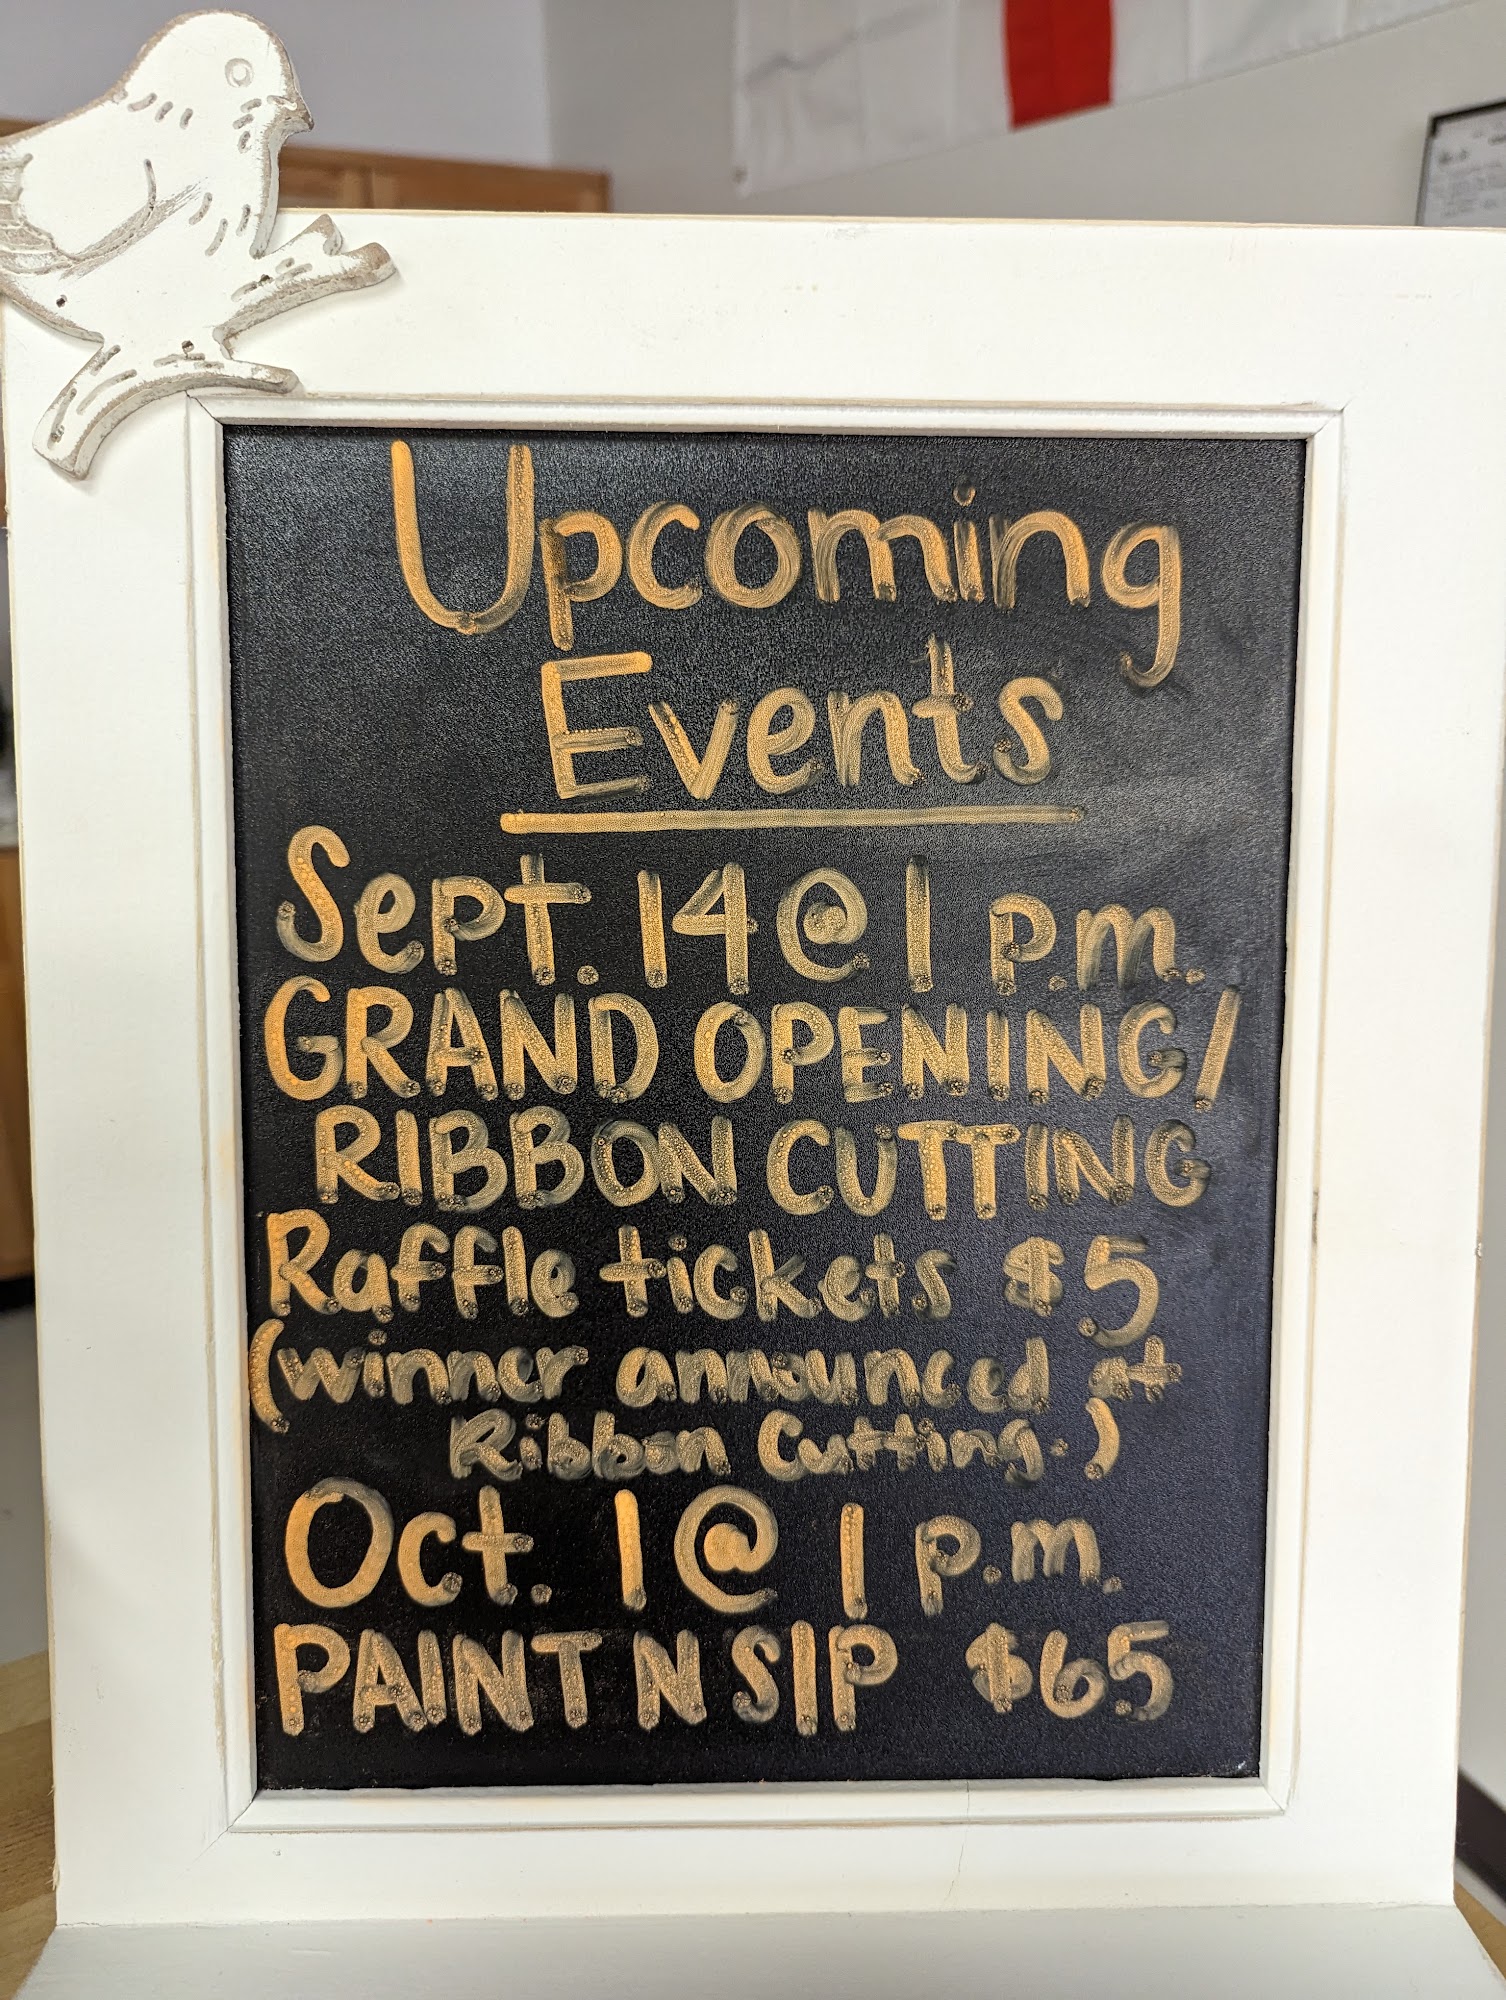 Upcoming
Events
Sept. 14 @ 1 p.m.
GRAND OPENING/
RIBBON CUTTING
Raffle tickets $5
(winner announced at
Ribbon Cutting.)
Oct. 1 @ 1 p.m.
PAINT N SIP $65